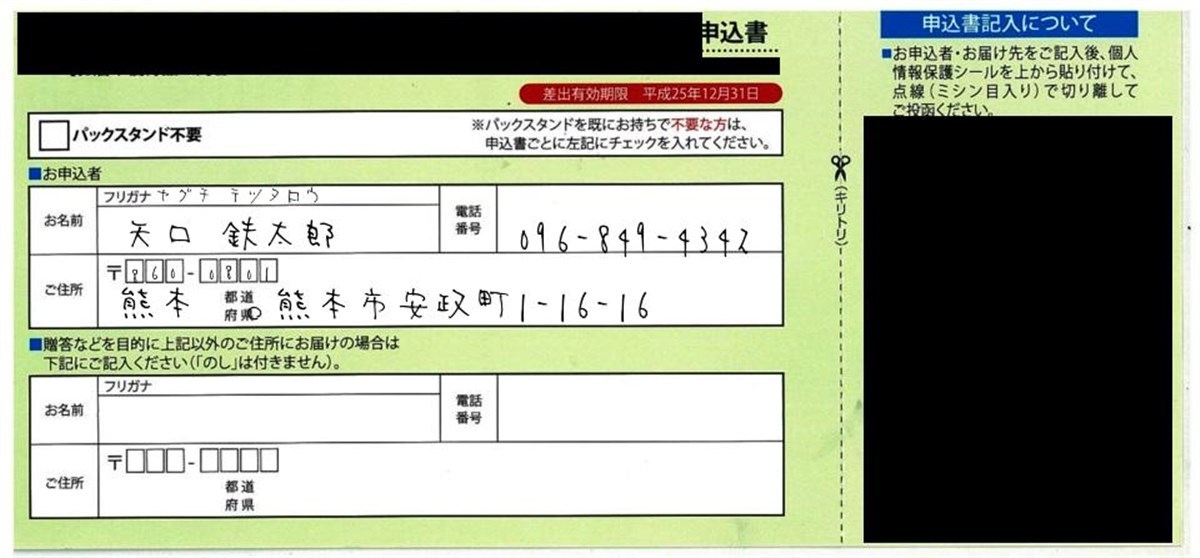 申込書
差出有効期限 平成25年12月31日
パックスタンド不要
※パックスタンドを既にお持ちで不要な方は、
申込書ごとに左記にチェックを入れてください。
■お申込者
お名前
フリガナ ヤグチ テツタロウ
矢口 鉄太郎
電話
番号
096-849-4342
ご住所
〒860-0801
熊本 都道
府県 熊本市安政町1-16-16
■贈答などを目的に上記以外のご住所にお届けの場合は
下記にご記入ください(「のし」は付きません)。
お名前
フリガナ
電話
番号
ご住所
〒
都道
府県
(キリトリ)
申込書記入について
■お申込者・お届け先をご記入後、個人
情報保護シールを上から貼り付けて、
点線(ミシン目入り)で切り離して
ご投函ください。